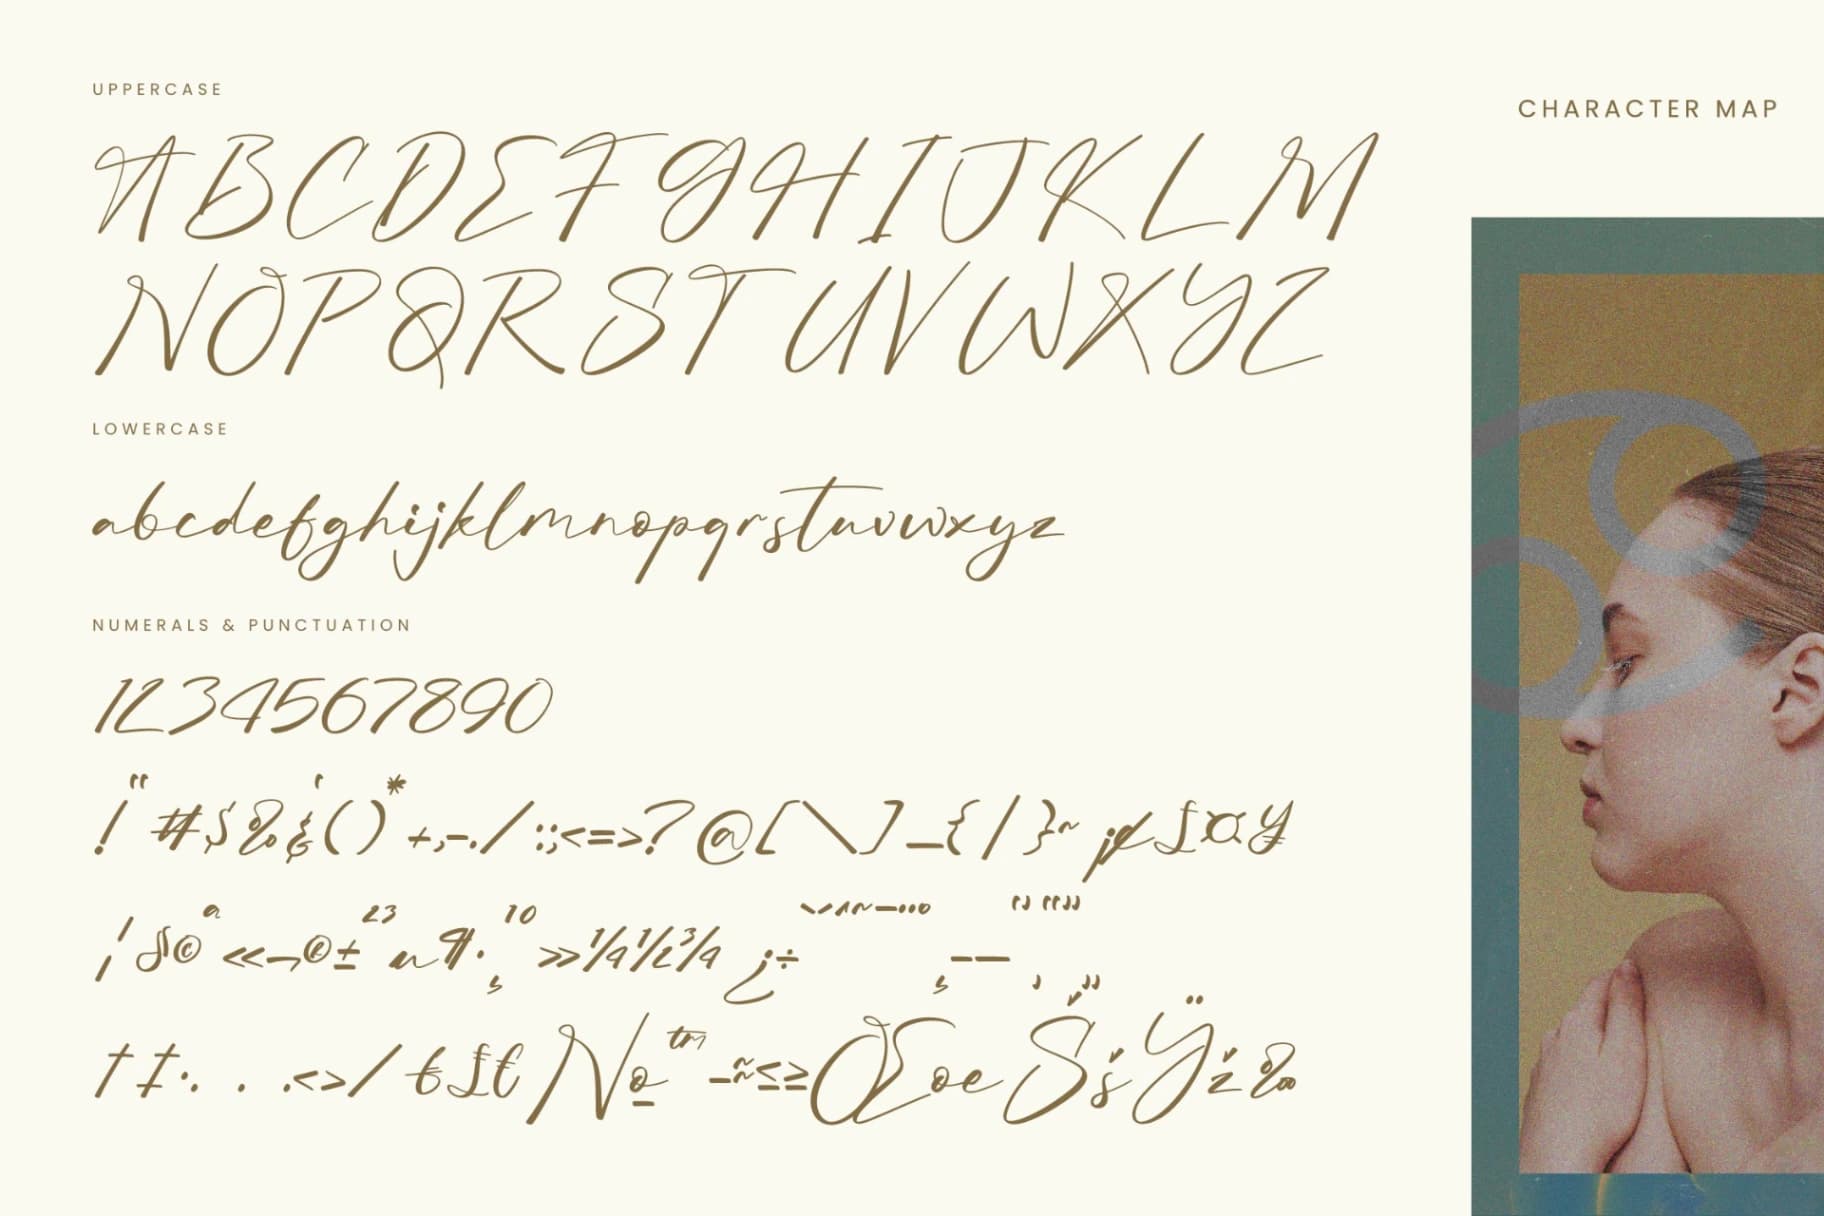 UPPERCASE
CHARACTER MAP
ABCDEFGHIJKLM
NOPQRSTUVWXYZ
LOWERCASE
abcdefghijklmnopqrstuvwxyz
NUMERALS & PUNCTUATION
1234567890
!"#$%&'()*+,-./:;<=>?@[\]_{|}~¡¢£¤¥
¦§©ª«¬®±²³µ¶·¸¹º»¼½¾¿÷
†‡•.‹›⁄€№™≤≥ŒœŠšŸž‰